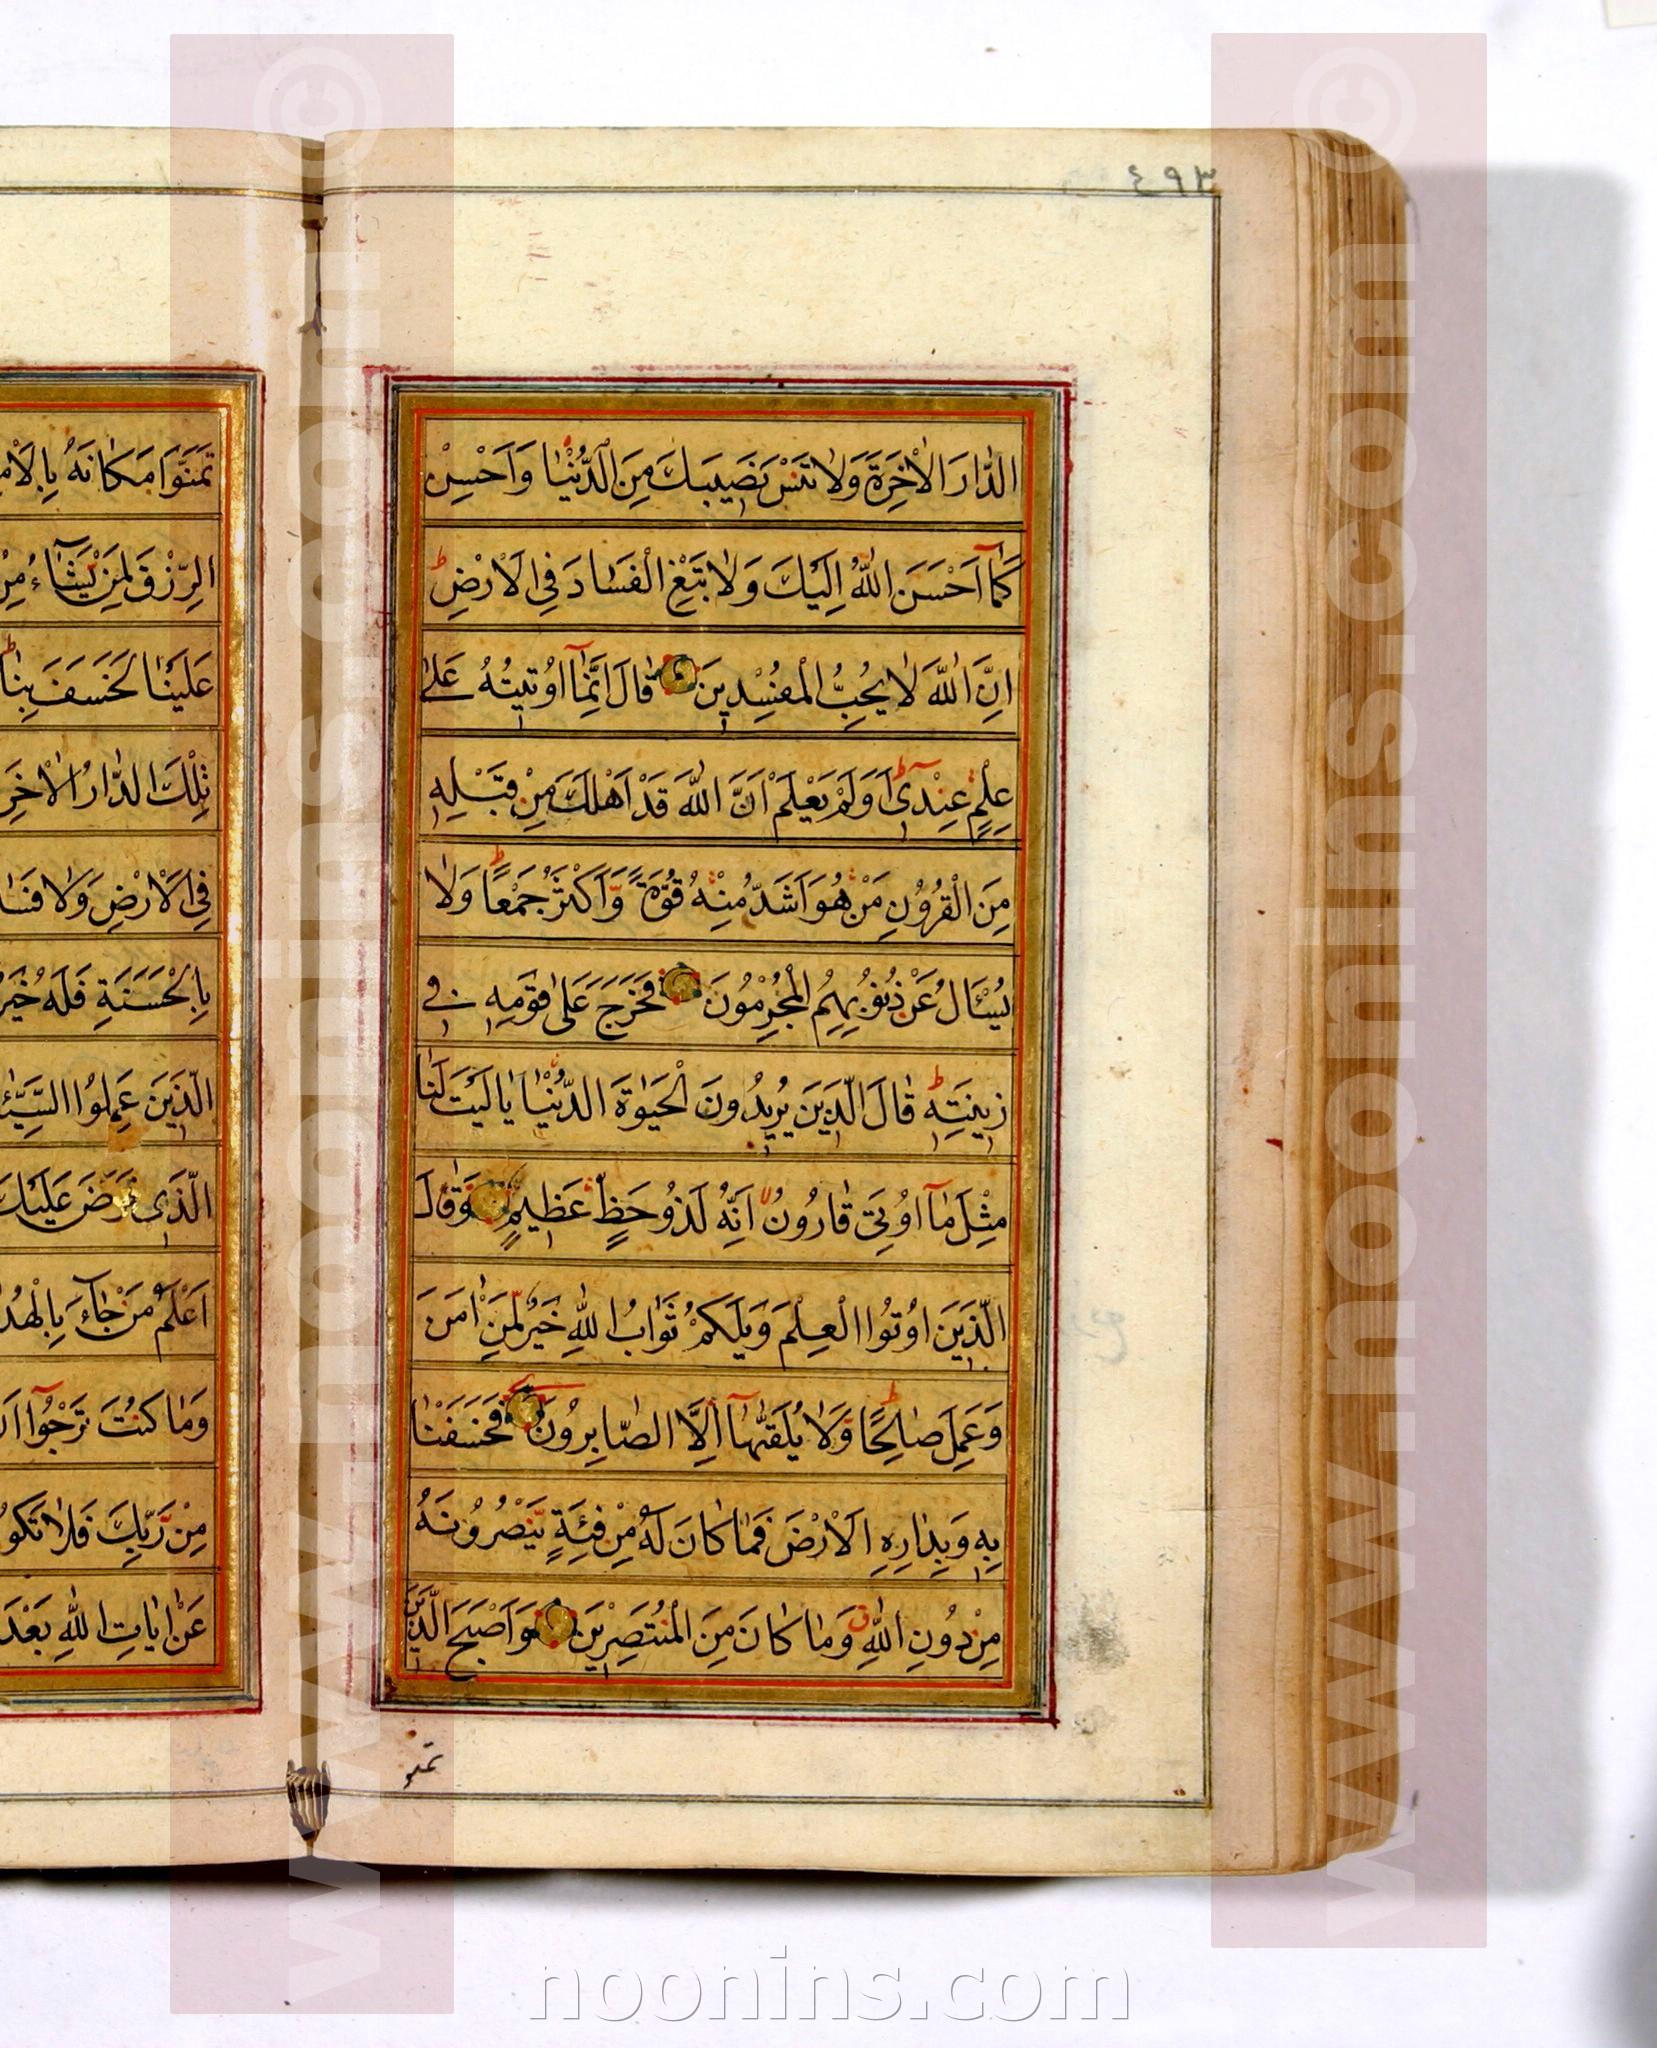 ٤٩٣
الدَّارَ الْاٰخِرَةَ وَلَا تَنْسَ نَصِيبَكَ مِنَ الدُّنْيَا وَاَحْسِنْ
كَمَآ اَحْسَنَ اللّٰهُ اِلَيْكَ وَلَا تَبْغِ الْفَسَادَ فِي الْاَرْضِ ط
اِنَّ اللّٰهَ لَا يُحِبُّ الْمُفْسِدِينَ قَالَ اِنَّمَآ اُوتِيتُهُ عَلٰى
عِلْمٍ عِنْدِيٓ ط اَوَلَمْ يَعْلَمْ اَنَّ اللّٰهَ قَدْ اَهْلَكَ مِنْ قَبْلِهِ
مِنَ الْقُرُونِ مَنْ هُوَ اَشَدُّ مِنْهُ قُوَّةً وَّاَكْثَرُ جَمْعًا ط وَلَا
يُسْئَالُ عَنْ ذُنُوبِهِمُ الْمُجْرِمُونَ فَخَرَجَ عَلٰى قَوْمِهِ فِي
زِينَتِهِ ط قَالَ الَّذِينَ يُرِيدُونَ الْحَيٰوةَ الدُّنْيَا يَا لَيْتَ لَنَا
مِثْلَ مَآ اُوتِيَ قَارُونُ لا اِنَّهُ لَذُو حَظٍّ عَظِيمٍ وَقَالَ
الَّذِينَ اُوتُوا الْعِلْمَ وَيْلَكُمْ ثَوَابُ اللّٰهِ خَيْرٌ لِّمَنْ اٰمَنَ
وَعَمِلَ صَالِحًا ط وَّلَا يُلَقّٰهَآ اِلَّا الصَّابِرُونَ فَخَسَفْنَا
بِهِ وَبِدَارِهِ الْاَرْضَ فَمَا كَانَ لَهُ مِنْ فِئَةٍ يَّنْصُرُونَهُ
مِنْ دُونِ اللّٰهِ ق وَمَا كَانَ مِنَ الْمُنْتَصِرِينَ وَاَصْبَحَ الَّذِينَ
تمنو
تَمَنَّوْا مَكَانَهُ بِالْاَمْ
الرِّزْقَ لِمَنْ يَّشَآءُ مِنْ
عَلَيْنَا لَخَسَفَ بِنَا ط
تِلْكَ الدَّارُ الْاٰخِرَ
فِي الْاَرْضِ وَلَا فَسَا
بِالْحَسَنَةِ فَلَهُ خَيْرٌ
الَّذِينَ عَمِلُوا السَّيِّئٰ
الَّذِي فَرَضَ عَلَيْكَ
اَعْلَمُ مَنْ جَآءَ بِالْهُدٰ
وَمَا كُنْتَ تَرْجُوٓا اَ
مِنْ رَّبِّكَ فَلَا تَكُو
عَنْ اٰيَاتِ اللّٰهِ بَعْدَ
www.noonins.com ©
www.noonins.com ©
noonins.com